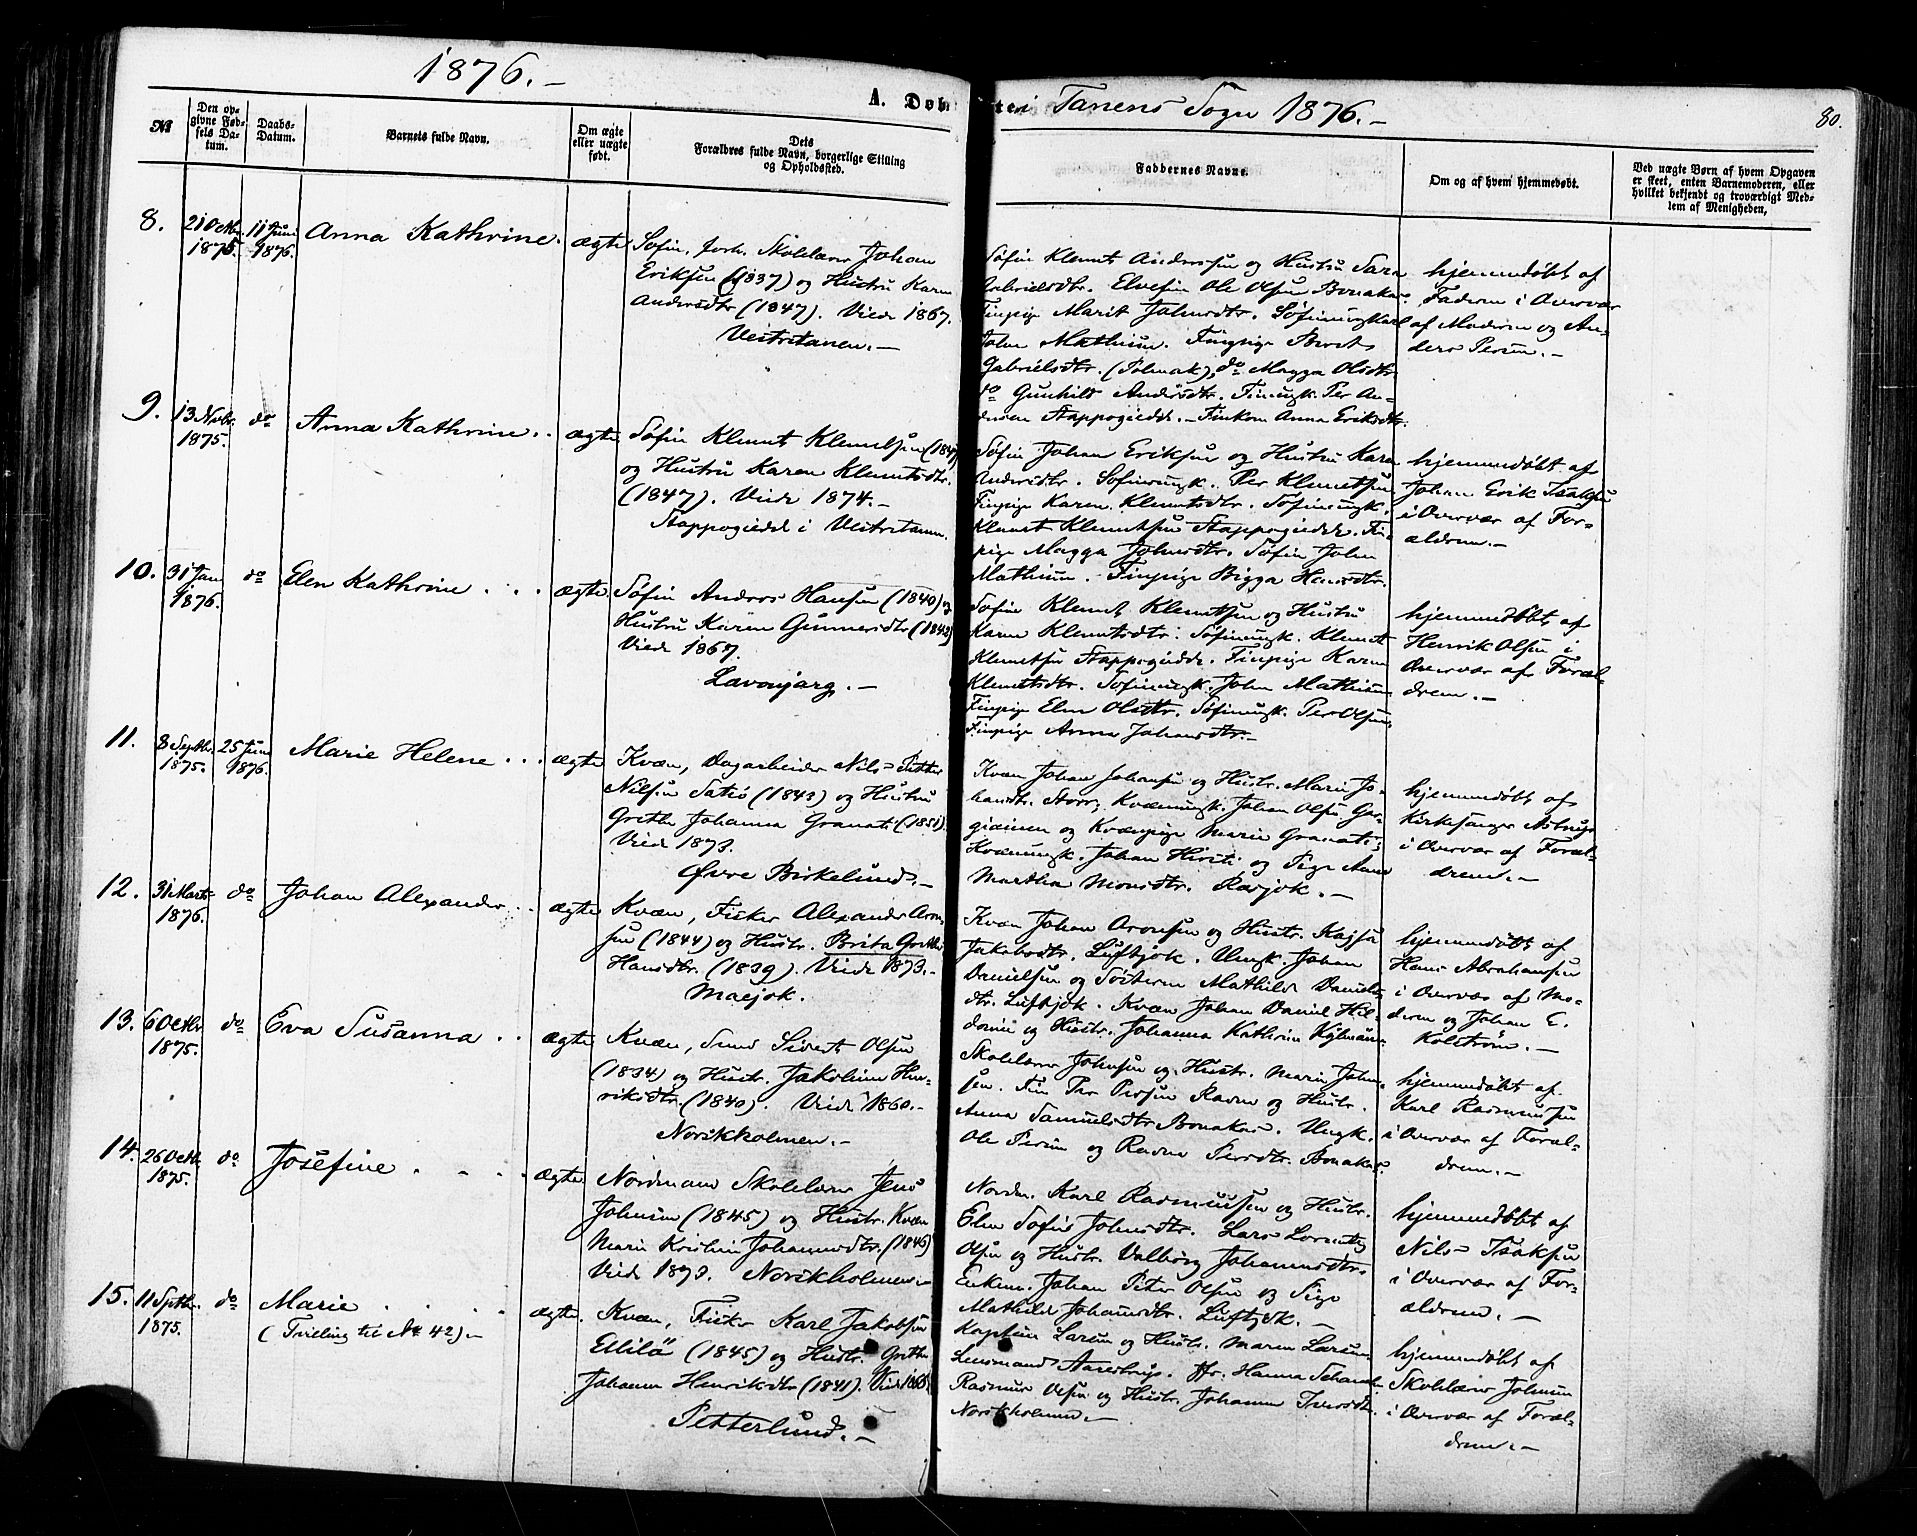 1876.-
A. Døb
te i Tanens Sogn 1876.-
80.
№
Den op-
givne Fød-
sels Da-
tum.
Daabs-
Datum.
Barnets fulde Navn.
Om ægte
eller uægte
født.
Dets
Forældres fulde Navn, borgerlige Stilling
og Opholdssted.
Faddernes Navne.
Om og af hvem hjemmedøbt.
Ved uægte Børn af hvem Opgaven
er skeet, enten Barnemoderen, eller
hvilket bekjendt og troværdigt Med-
lem af Menigheden,
8.
21 Octbr.
1875.
11 Juni
1876.
Anna Kathrine.
ægte
Søfin, forh. Skolelærer Johan
Eriksen (1837) og Hustru Karen
Andersdtr (1847). Viede 1867.
Vestertanen.-
Søfin Klemet Anderssen og Hustru Sara
Gabrielsdtr. Elvefin Ole Olsen Bonakas.
Finpige Marit Johnsdtr. Søfinungkarl
John Mathisen. Finpige Berit
Gabrielsdtr. (Polmak), do Magga Olsdtr.
do Gunhild Andersdtr. Finungk. Per An-
dersen Stappogiedde. Finkone Anna Eriksdtr.
hjemmedøbt af
Faderen i Overvær
af Moderen og An-
ders Persen.-
9.
13 Novbr.
1875.
do
Anna Kathrine..
ægte
Søfin Klemet Klemetsen (1847)
og Hustru Karen Klemetsdtr.
(1847). Viede 1874.-
Stappogiedde i Vestertanen.
Søfin Johan Eriksen og Hustru Karen
Andersdtr. Søfinungk. Per Klemetsen
Finpige Karen Klemetsdtr. Søfinungk.
Klemet Klemetsen Stappogiedde. Fin-
pige Magga Johnsdtr. Søfin John
Mathisen. Finpige Bigga Hansdtr.
hjemmedøbt af
Johan Erik Isaksen
i Overvær af For-
ældrene.-
10.
31 Jan
1876.
do
Elen Kathrine . . .
ægte
Søfin Anders Hansen (1840) og
Hustru Karen Gunnersdtr (1842)
Viede 1867.
Lavonjarg.-
Søfin Klemet Klemetsen og Hustru
Karen Klemetsdtr. Søfinungk. Klemet
Klemetsen Stappogiedde. Finpige Karen
Klemetsdtr. Søfinungk. John Mathisen
Finpige Elen Olsdtr. Søfinungk. Per Olsen,
Finpige Anna Johansdtr.-
hjemmedøbt af
Henrik Olsen i
Overvær af Foræl-
drene.-
11.
8 Septbr.
1875.
25 Juni
1876.
Marie Helene . . .
ægte
Kvæn, Dagarbeider Nils Petter
Nilsen Satiö (1843) og Hustru
Grethe Johanna Granati (1851).
Viede 1873.
Øvre Birkelund.-
Kvæn Johan Johansen og Hustr. Marie Jo-
hansdtr. Storr, Kvænungk. Johan Olsen Gar-
giainen og Kvænpige Marie Granati;
Kvænungk. Johan Hirsti og Pige Anne
Martha Monsdtr. Rasjok.-
hjemmedøbt af
Kirkesanger Astrup
i Overvær af Foræl-
drene.-
12.
31 Marts
1876.
do
Johan Alexander . .
ægte
Kvæn, Fisker Alexander Aron-
sen (1844) og Hustr. Brita Grethe
Hansdtr. (1839). Viede 1873.-
Masjok.
Kvæn Johan Aronsen og Hustr. Kajsa
Jakobsdtr. Luftjok. Ungk. Johan
Danielsen og Søsteren Mathilde Daniels-
dtr. Luftjok. Kvæn Johan Daniel Hil-
donen og Hustr. Johanna Kathrine Kylmän-
hjemmedøbt af
Hans Abrahamsen
i Overvær af Mo-
deren og Johan E.
Kolström.-
13.
6 Octbr
1875.
do
Eva Susanna . .
ægte
Kvæn, Smed Sivert Olsen
(1834) og Hustr. Jakobine Hen-
riksdtr. (1840). Viede 1860.-
Norskholmen.-
Skolelærer Johnsen og Hustr. Marie John-
sen. Fin Per Persen Ravna og Hustr.
Anna Samuelsdtr Bonakas. Ungk.
Ole Persen og Ravna Persdtr. Bonakas.
hjemmedøbt af
Karl Rasmussen
i Overvær af Foræl-
drene.-
14.
26 Octbr.
1875.
do
Josefine . . . .
ægte
Nordmand Skolelærer Jens
Johnsen (1845) og Hustr. Kvæn
Marie Kristine Johannesdtr. (1846)
Viede 1873. Norskholmen.-
Nordm. Karl Rasmussen og Hustr.
Elen Sofie Johnsdtr. Lars Lorentz
Olsen og Hustr. Valborg Johannesdtr.
Enkem. Johan Peter Olsen og Pige
Mathilde Johannesdtr. Luftjok.-
hjemmedøbt af
Nils Isaksen
i Overvær af For-
ældrene.-
15.
11 Septbr.
1875.
do
Marie . . . .
(Tvilling til № 42)-
ægte.
Kvæn, Fisker Karl Jakobsen
Ellilä (1845) og Hustr. Grethe
Johanne Henriksdtr (1841). Viede 1868.
Petterlund.-
Kaptein Larsen og Hustr. Maren Larsen.
Lensmand Aarestrup. Fr. Hanna Schanche.
Rasmus Olsen og Hustr. Johanne Iversdtr.
Norskholmen.-
hjemmedøbt af
Skolelærer Johnsen
i Overvær af Foræl-
drene.-